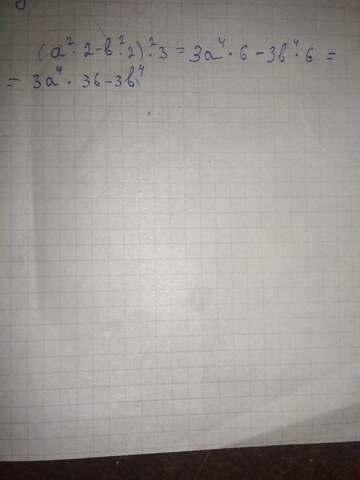 (a²·2-в²·2)²·3 = 3a⁴·6-3в⁴·6 =
= 3a⁴·36-3в⁴